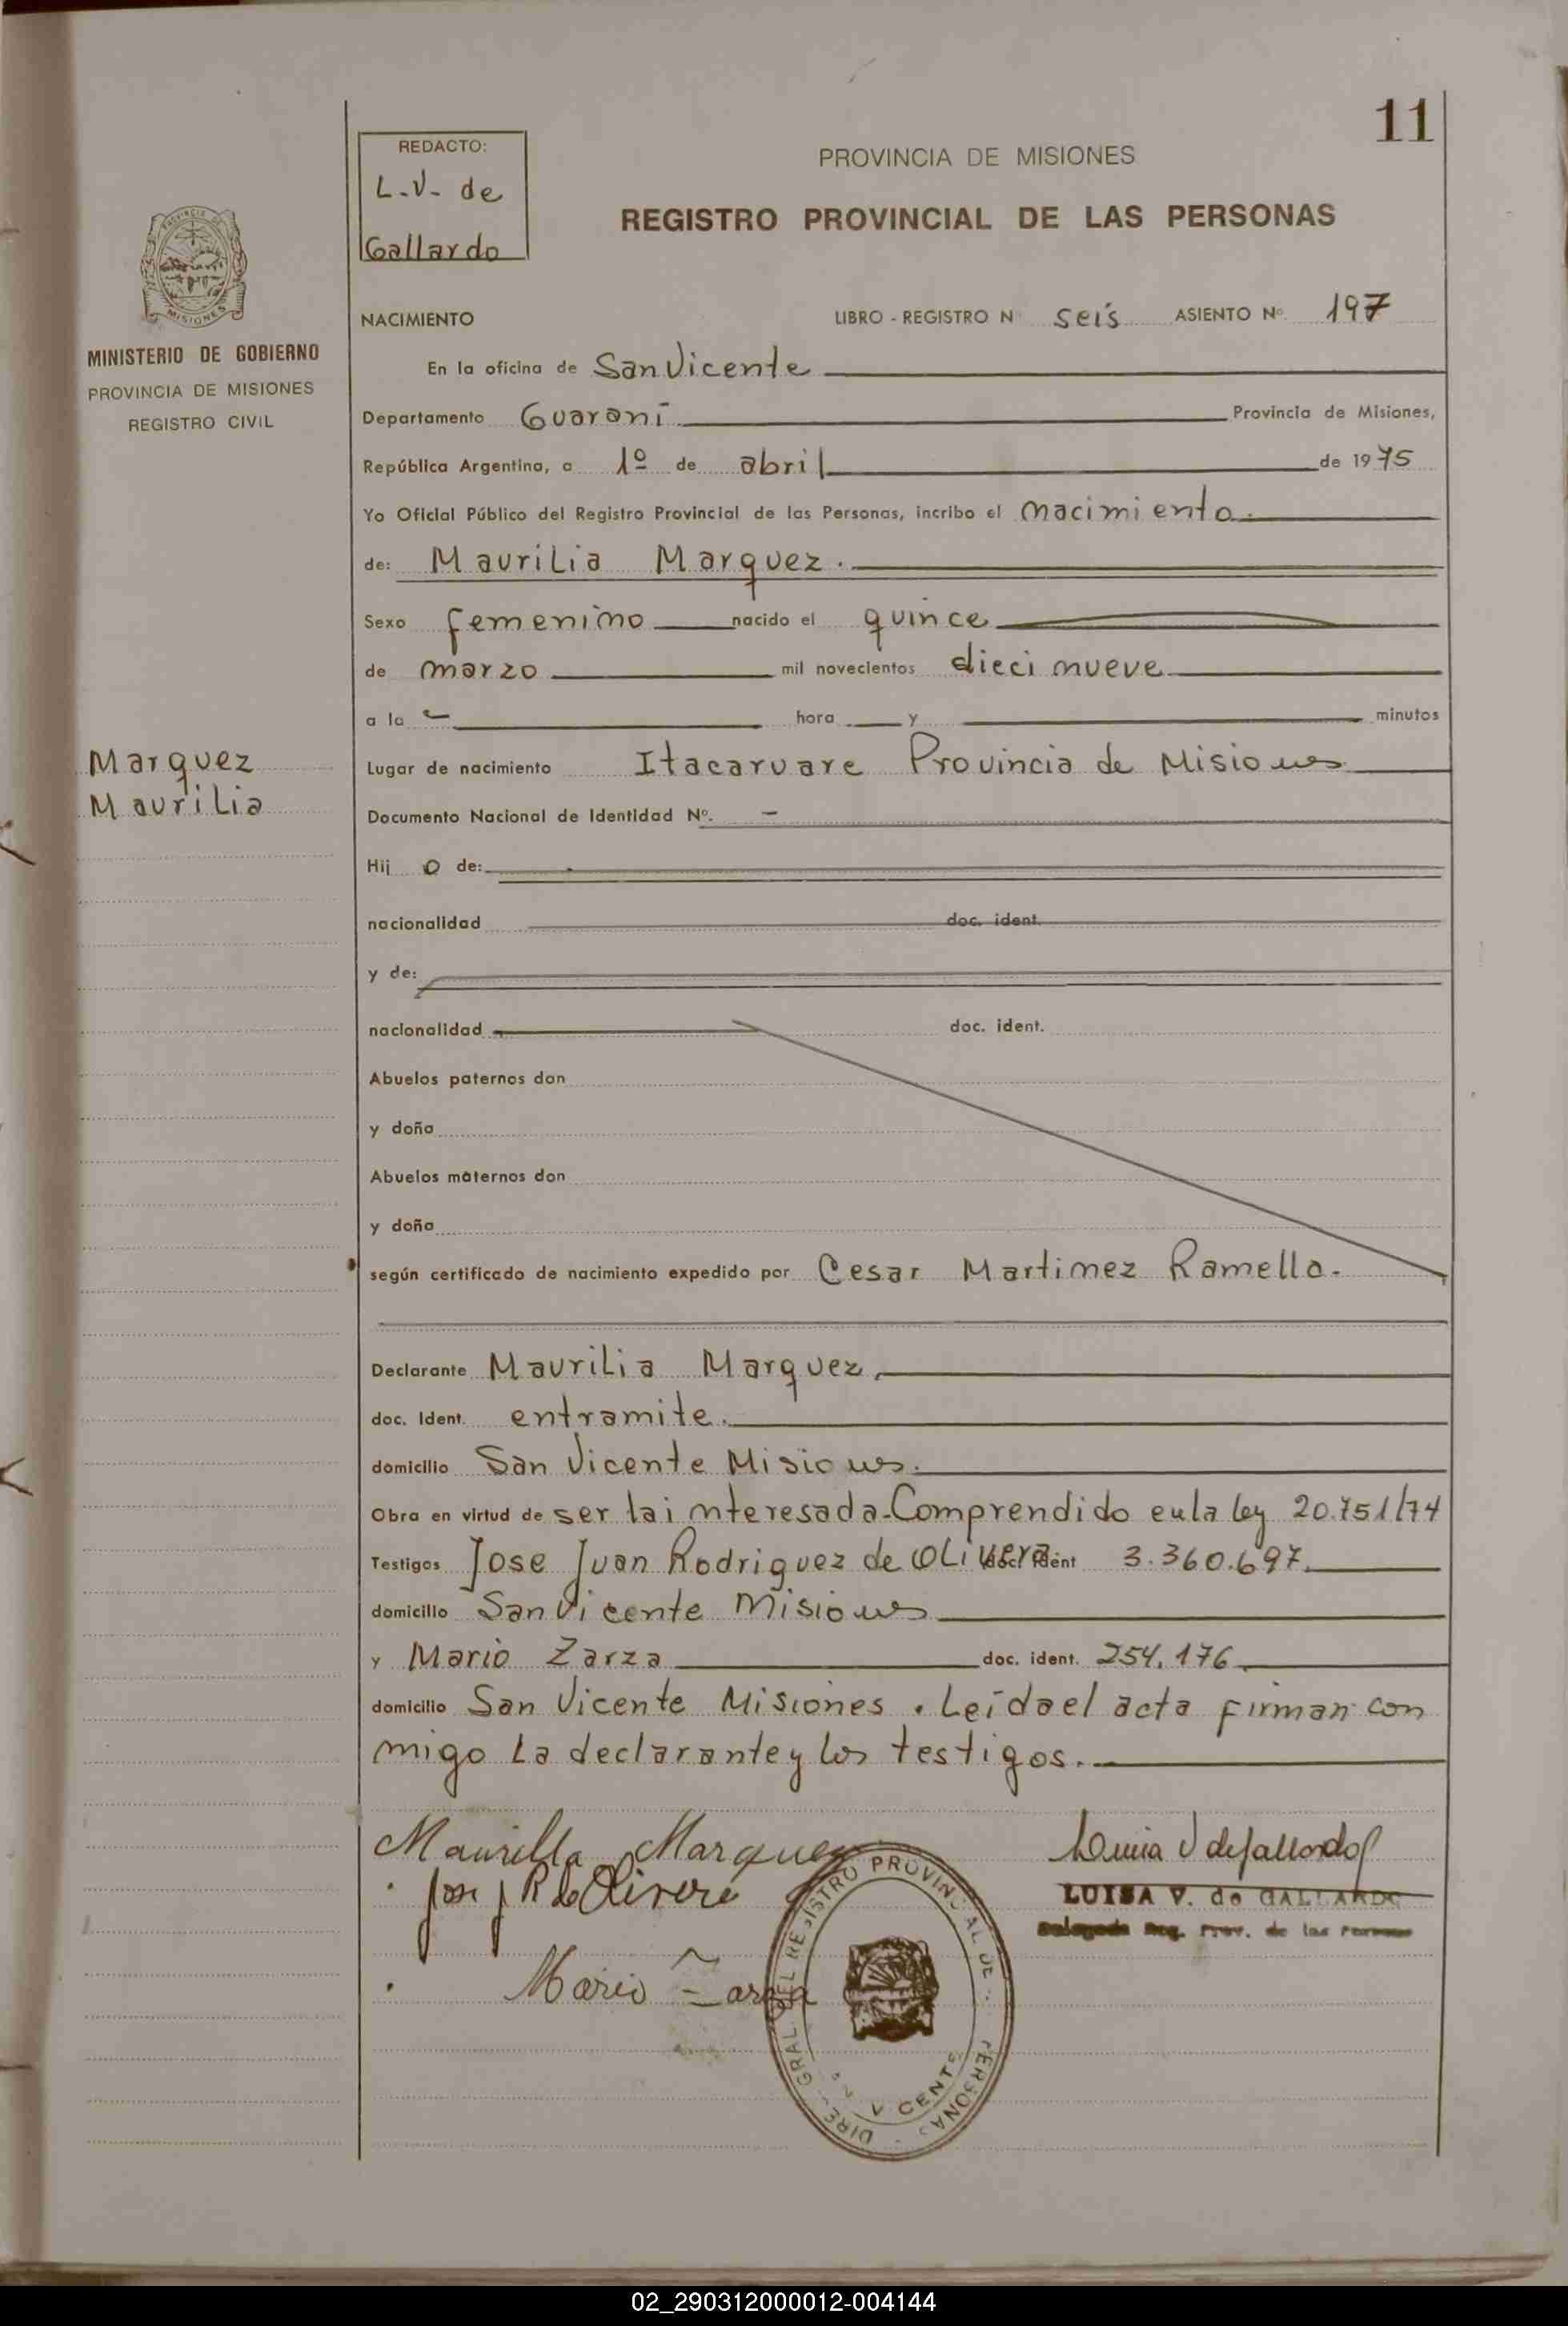 11
REDACTO:
L-V- de
Gallardo
PROVINCIA DE MISIONES
REGISTRO PROVINCIAL DE LAS PERSONAS
MISIONES
MINISTERIO DE GOBIERNO
PROVINCIA DE MISIONES
REGISTRO CIVIL
NACIMIENTO LIBRO - REGISTRO N seis ASIENTO Nº 197
En la oficina de San Vicente
Departamento Guaraní Provincia de Misiones,
República Argentina, a 1º de abril de 1975
Yo Oficial Público del Registro Provincial de las Personas, incribo el nacimiento.
de: Maurilia Marquez.
Sexo femenino nacido el quince
de marzo mil novecientos dieci nueve
a la - hora y minutos
Marquez
Maurilia
Lugar de nacimiento Itacaruare Provincia de Misiones
Documento Nacional de Identidad Nº. -
Hij o de:
nacionalidad doc. ident.
y de:
nacionalidad doc. ident.
Abuelos paternos don
y doña
Abuelos maternos don
y doña
según certificado de nacimiento expedido por Cesar Martinez Ramella.
Declarante Maurilia Marquez.
doc. Ident. entramite.
domicilio San Vicente Misiones.
Obra en virtud de ser la interesada-Comprendido en la ley 20.751/74
Testigos Jose Juan Rodriguez de Olivera doc. ident 3.360.697.
domicilio San Vicente Misiones
y Mario Zarza doc. ident. 254.176
domicilio San Vicente Misiones. Leída el acta firman con
migo La declarante y los testigos.
Maurilia Marquez
Jose J R de Olivera
Mario Zarza
Luisa V de Gallardo
LUISA V. de GALLARDO
Delegada Reg. Prov. de las Personas
02_290312000012-004144